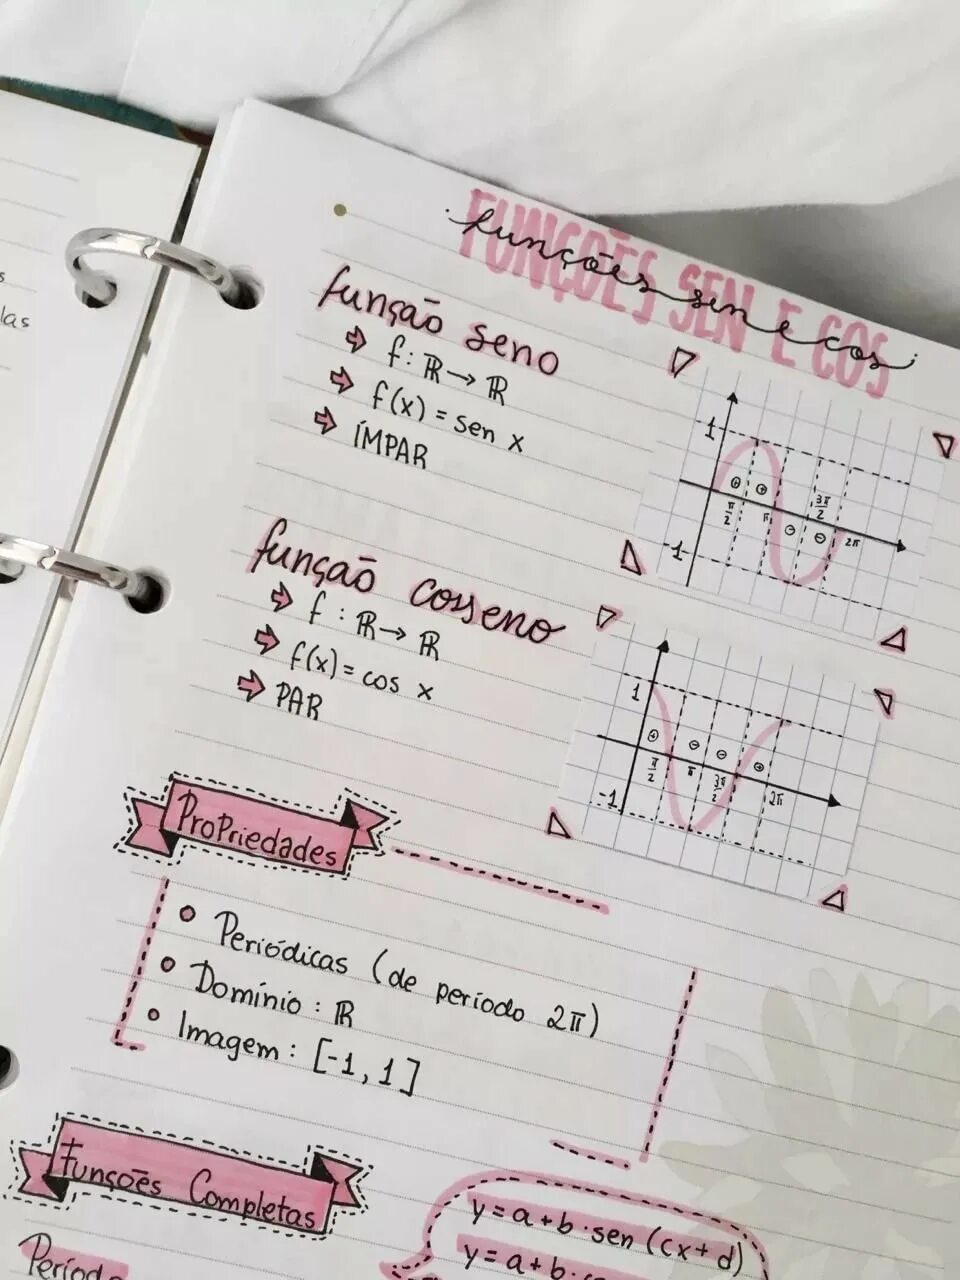 las
FUNÇÕES SEN E COS
funções sen e cos
função seno
f: ℝ → ℝ
f(x) = sen x
ÍMPAR
1
π/2
π
3π/2
2π
-1
função cosseno
f: ℝ → ℝ
f(x) = cos x
PAR
1
π/2
π
3π/2
2π
-1
Propriedades
Periódicas (de período 2π)
Domínio: ℝ
Imagem: [-1, 1]
Funções Completas
y = a + b · sen (cx + d)
y = a + b ·
Período